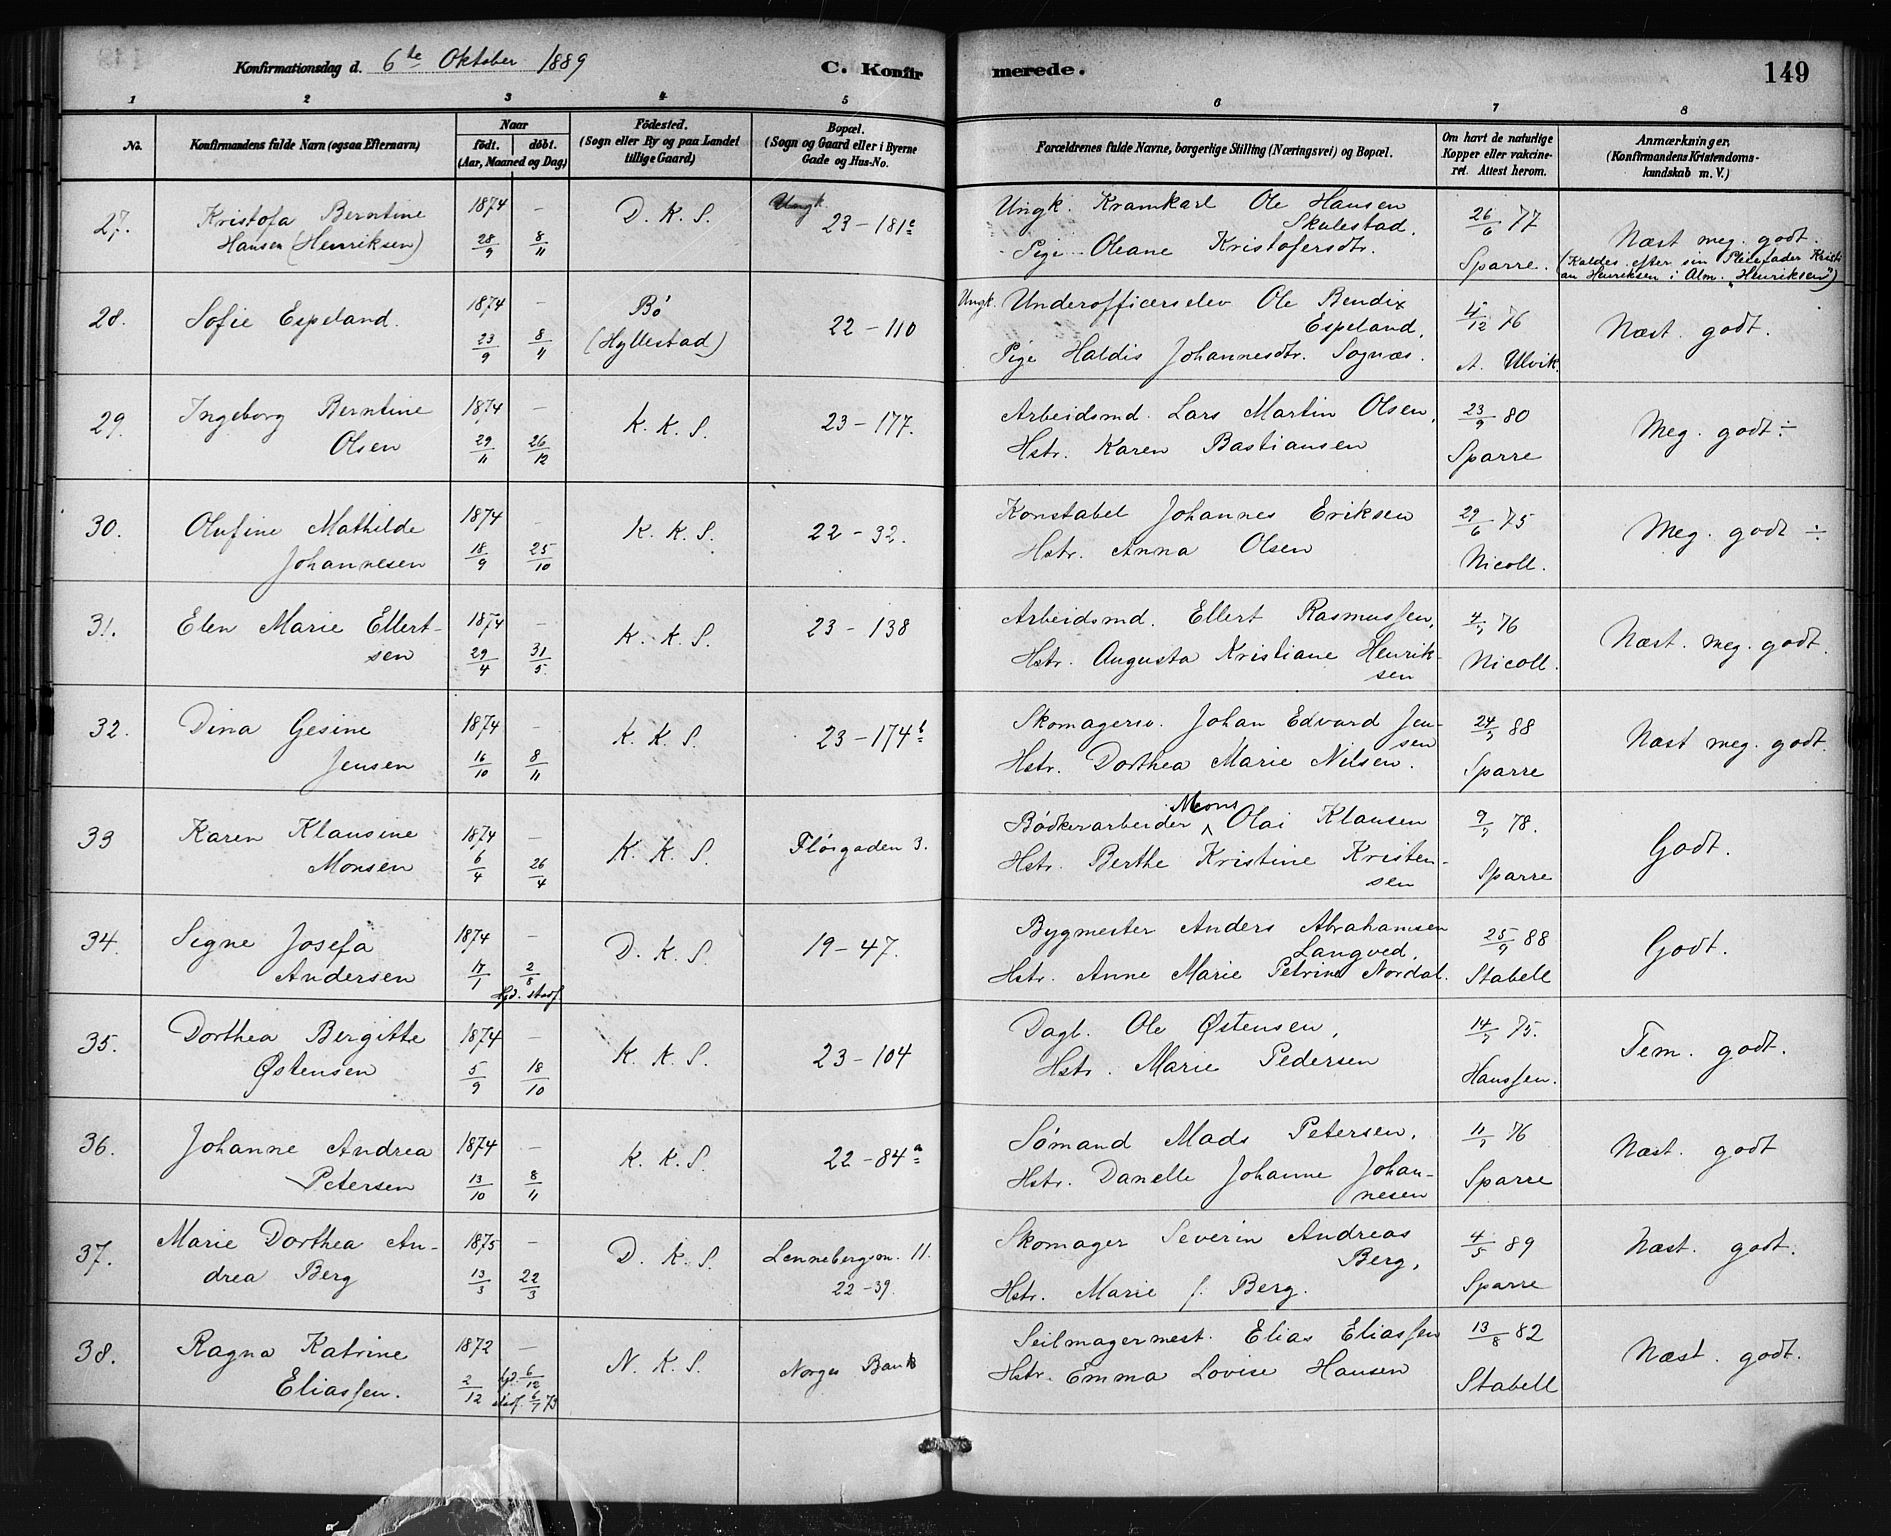 Konfirmationsdag d. 6te Oktober 1889 C. Konfirmerede. 149
1 2 3 4 5 6 7 8
No. Konfirmandens fulde Navn (ogsaa Efternavn) Naar født. døbt. (Aar, Maaned og Dag) Fødested. (Sogn eller By og paa Landet tillige Gaard) Bopæl. (Sogn og Gaard eller i Byerne Gade og Hus-No. Forældrenes fulde Navne, borgerlige Stilling (Næringsvei) og Bopæl. Om havt de naturlige Kopper eller vakcineret. Attest herom. Anmærkninger, (Konfirmandens Kristendomskundskab m. V.)
27. Kristofa Berntine 1874 – D. K. S. Ungk. 23-181c Ungk. Kramkarl Ole Hansen Skulestad, 26/6 77 Næst meg. godt.
Hansen (Henriksen) 28/9 8/11 Pige Oleane Kristofersdtr. Sparre. (Kaldes efter sin Pleiefader Kristian Henriksen i Alm. "Henriksen")
28. Sofie Espeland. 1874 – Bø 22-110 Ungk. Underofficerselev Ole Bendix Espeland, 4/12 76 Næst godt.
23/9 8/11 (Hyllestad) Pige Haldis Johannesdtr. Sognæs. A. Ulvik.
29. Ingeborg Berntine 1874 – K. K. S. 23-177. Arbeidsmd. Lars Martin Olsen, 23/9 80 Meg. godt ÷
Olsen 29/11 26/12 Hstr. Karen Bastiansen Sparre
30. Olufine Mathilde 1874 – K. K. S. 22-32. Konstabel Johannes Eriksen 29/6 75 Meg. godt ÷
Johannesen 18/9 25/10 Hstr. Anna Olsen Nicoll.
31. Elen Marie Ellert- 1874 – K. K. S. 23-138 Arbeidsmd. Ellert Rasmussen, 76 Næst. meg. godt.
sen 29/4 31/5 Hstr. Augusta Kristiane Henriksen Nicoll.
32. Dina Gesine 1874 – K. K. S. 23-174b Skomagersv. Johan Edvard Jensen 88 Næst meg. godt.
Jensen 16/10 8/11 Hstr. Dorthea Marie Nilsen. Sparre
33 Karen Klausine 1874 – K. K. S. Fløigaden 3. Bødkerarbeider Mons Olai Klausen 78. Godt.
Monsen 6/4 26/4 Hstr. Berthe Kristine Kristensen Sparre
34. Signe Josefa 1874 – D. K. S. 19-47. Bygmester Anders Abrahamsen Langved, 25/9 88 Godt.
Andersen 17/1 2/8 hjd. stadf. Hstr. Anne Marie Petrine Nordal. Stabell
35. Dorthea Bergitte 1874 – K. K. S. 23-104 Dagl. Ole Østensen, 75. Tem. godt.
Østensen 5/9 18/10 Hstr. Marie Pedersen Hanssen.
36. Johanne Andrea 1874 – K. K. S. 22-84a Sømand Mads Petersen, 76 Næst. godt
Petersen 13/10 8/11 Hstr. Danelle Johanne Johannesen Sparre
37. Marie Dorthea An- 1875 – D. K. S. Lennebergsm. 11. Skomager Severin Andreas Berg, 4/5 89 Næst. godt.
drea Berg 13/3 22/3 22-39. Hstr. Marie f. Berg. Sparre
38. Ragna Katrine 1872 – N. K. S. Norges Bank Seilmagermest. Elias Eliassen 13/8 82 Næst. godt.
Eliassen. 2/12 hjd. 6/12 stadf. 6/7 73 Hstr. Emma Lovise Hansen Stabell